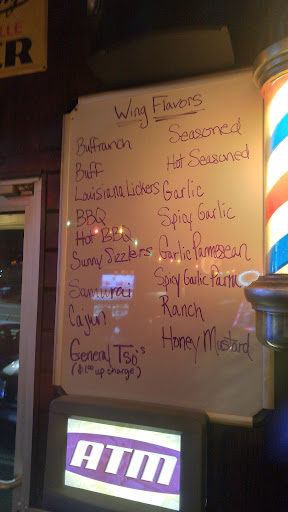 ER
Wing Flavors
Buffranch
Buff
Louisiana Lickers
BBQ
Hot BBQ
Sunny Sizzlers
Samurai
Cajun
General Tso's
($1.00 up charge)
Seasoned
Hot Seasoned
Garlic
Spicy Garlic
Garlic Parmesean
Spicy Garlic Parm
Ranch
Honey Mustard
ATM